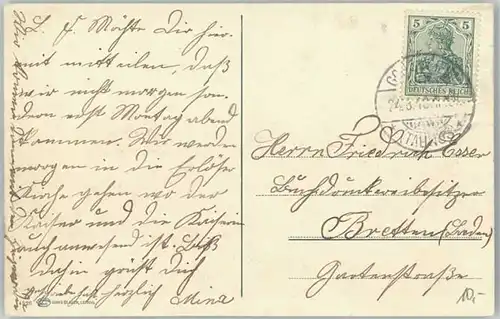 L. F. Möchte Dir hier-
mit mitteilen, daß
wir nicht morgen son-
dern erst Montag abend
kommen. Wir werden
morgen in die Erlöser
Kirche gehen wo der
Kaiser und die Kaiserin
auch anwesend ist. Bis
dahin grüßt Dich
herzlich Mina
5 5
DEUTSCHES REICH
Herrn Friedrich Esser
Buchdruckereibesitzer
Bretten (Baden)
Gartenstraße
10,-